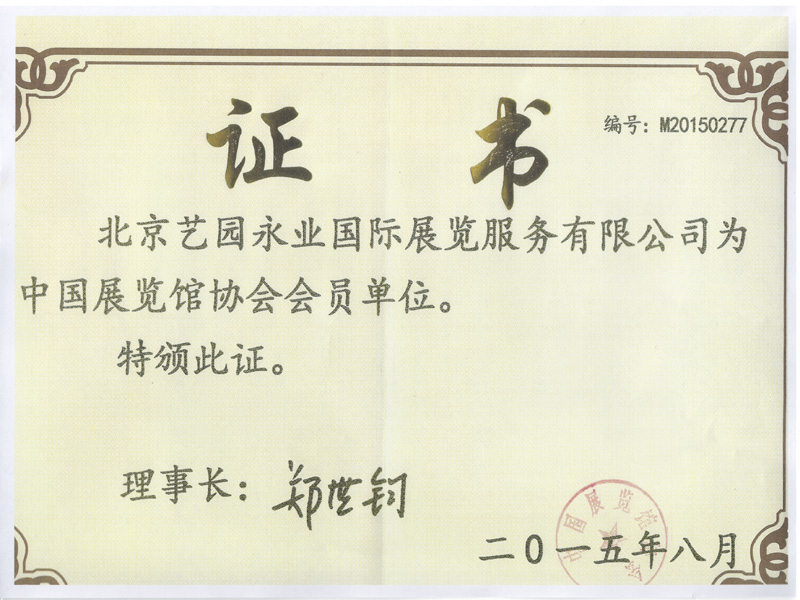 证 书
编号：M20150277
北京艺园永业国际展览服务有限公司为
中国展览馆协会会员单位。
特颁此证。
理事长：郑世钧
中国展览馆 会
二0一五年八月